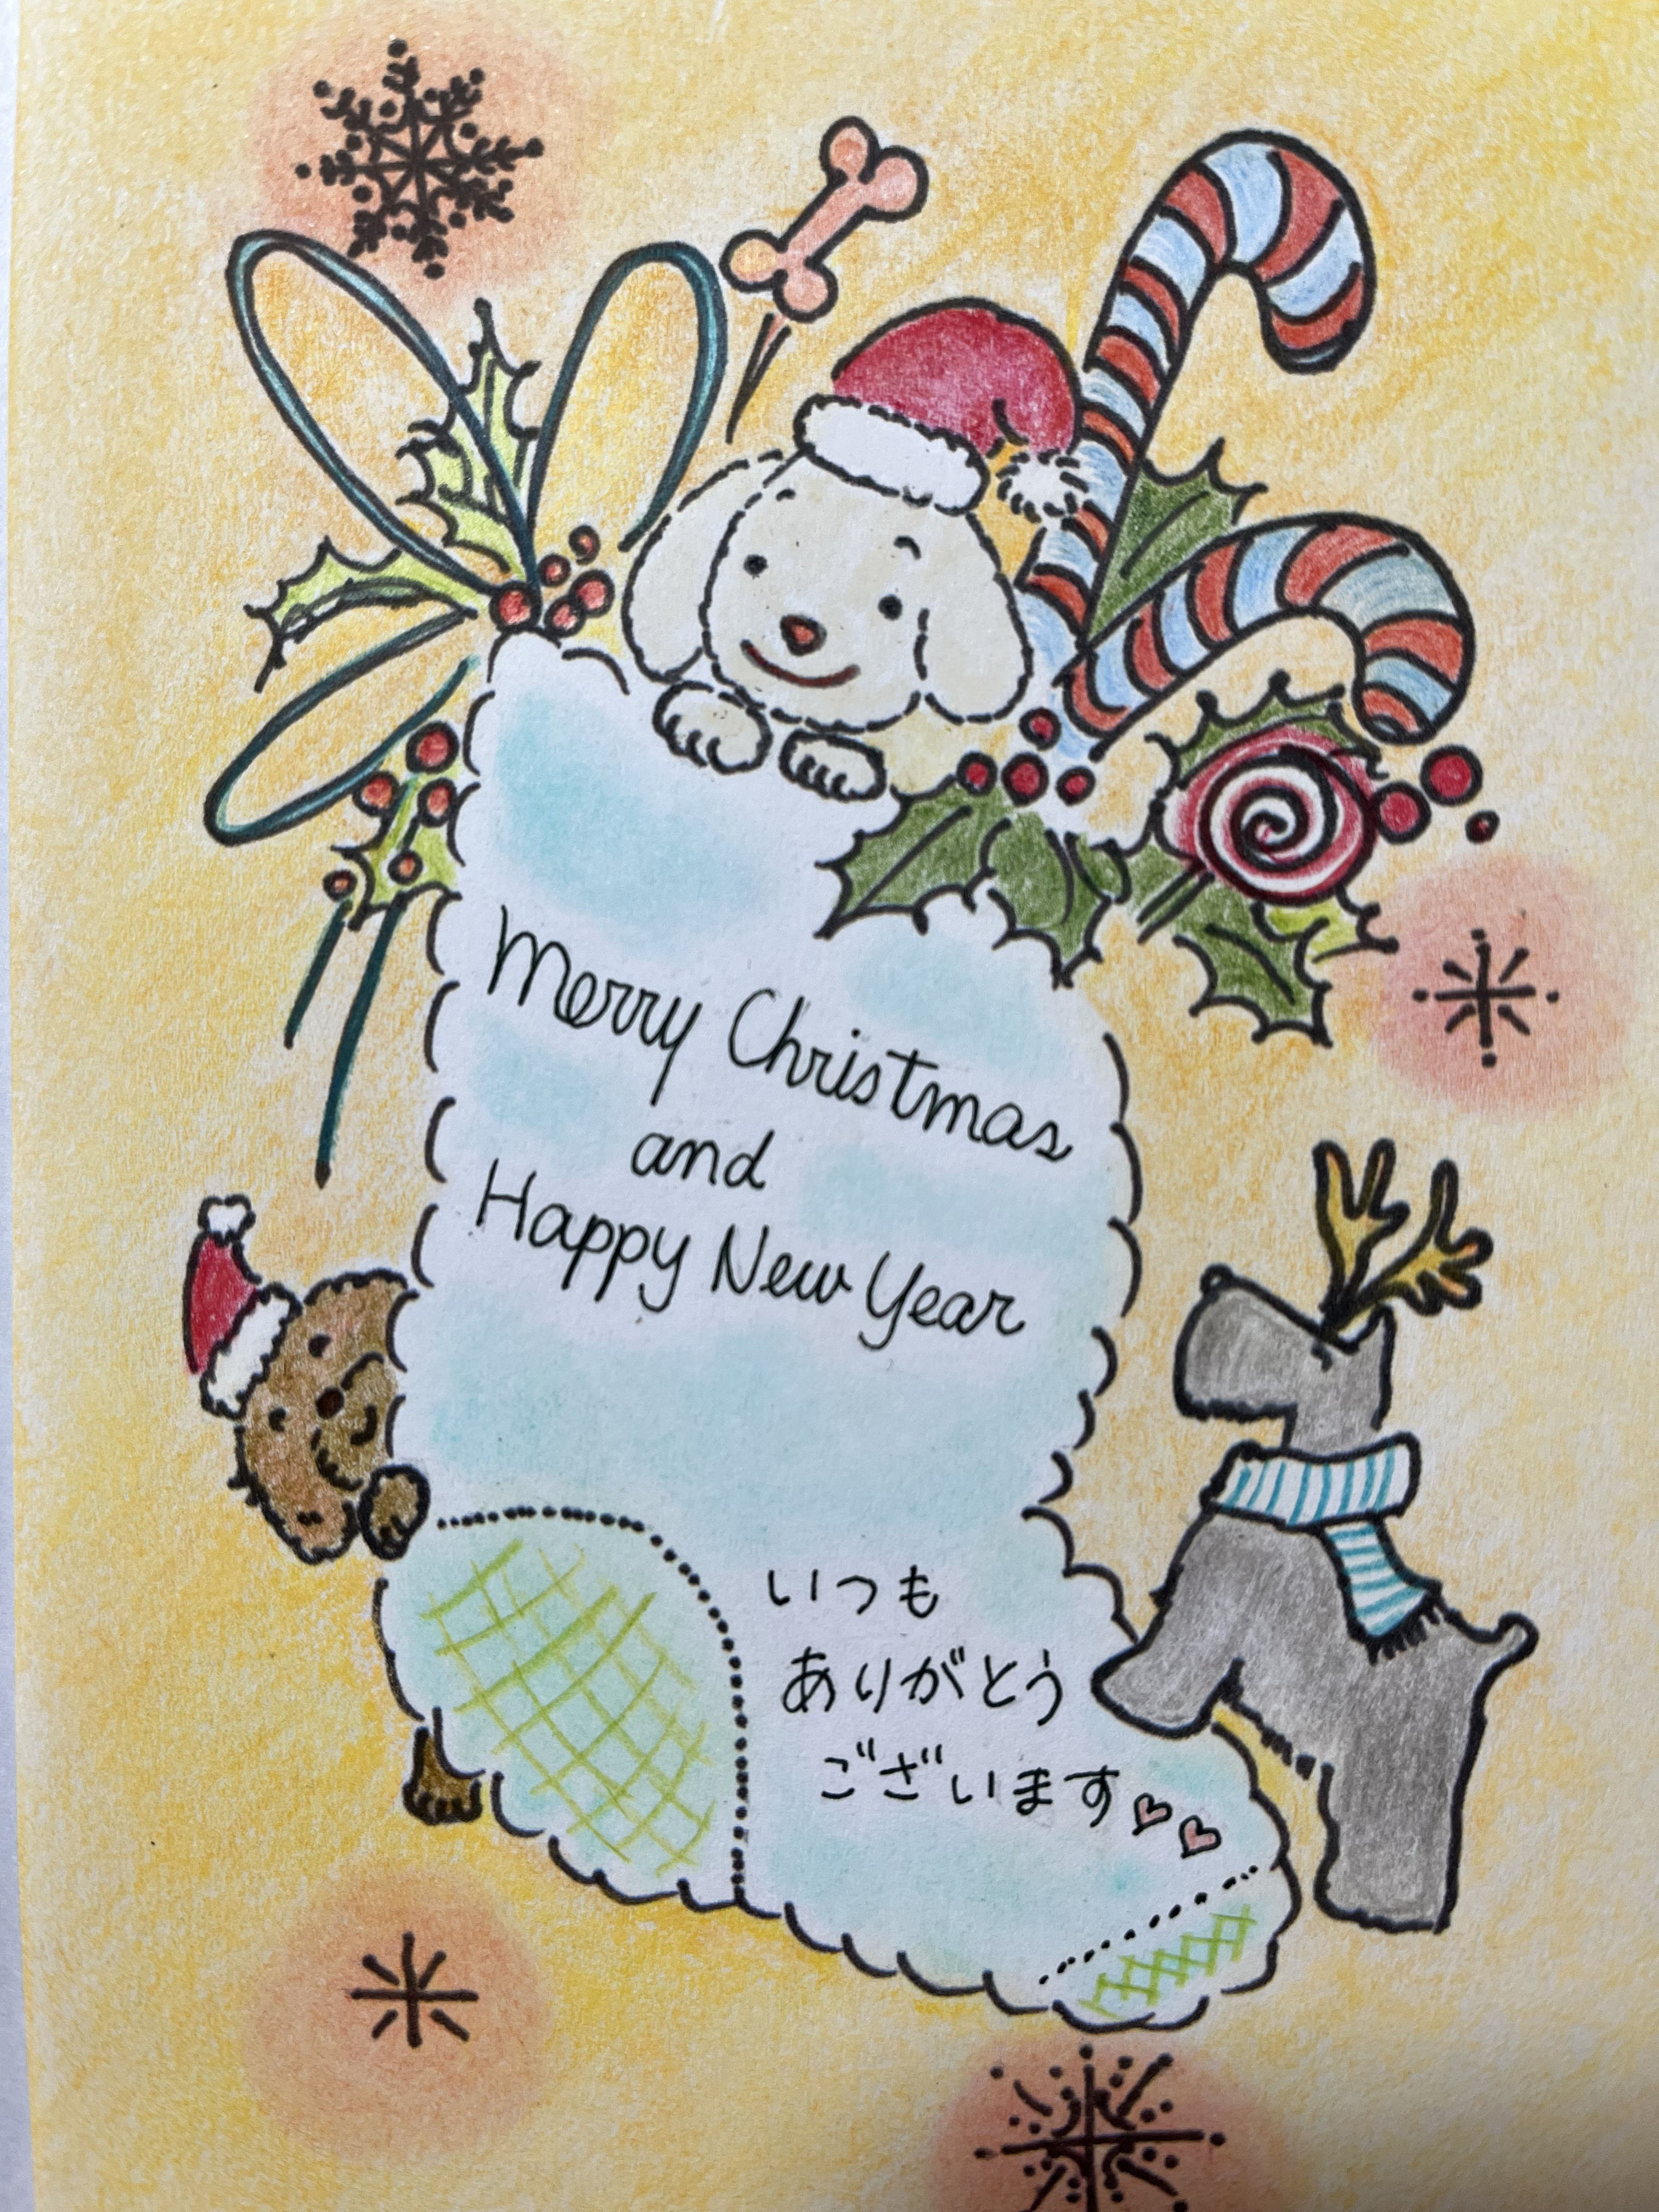 Merry Christmas
and
Happy New Year
いつも
ありがとう
ございます♡♡